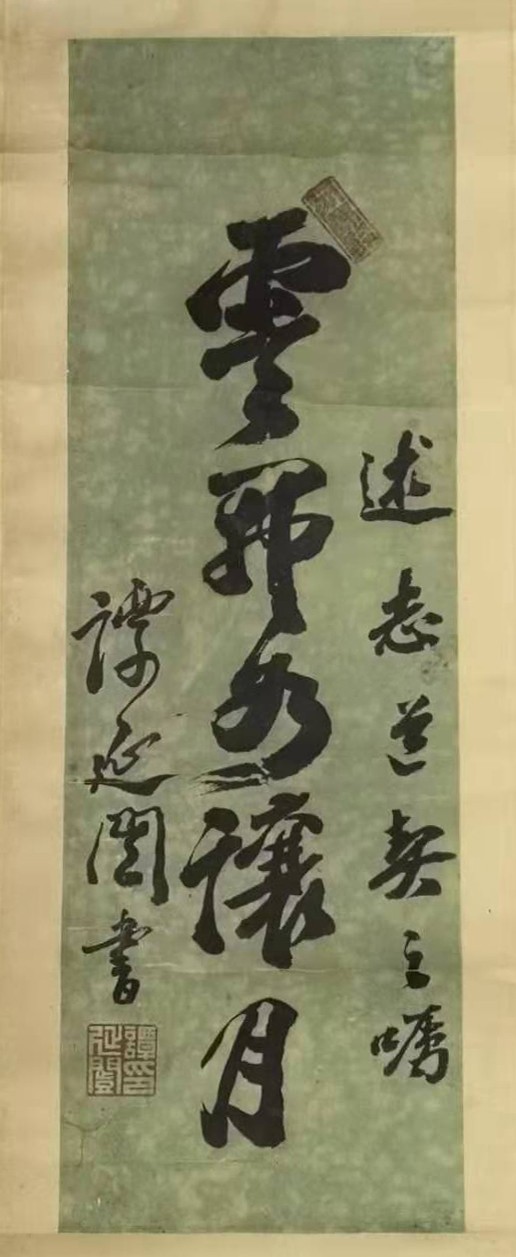 述志道契之嘱
雲 讓月
譚延闓書
譚印
延闓